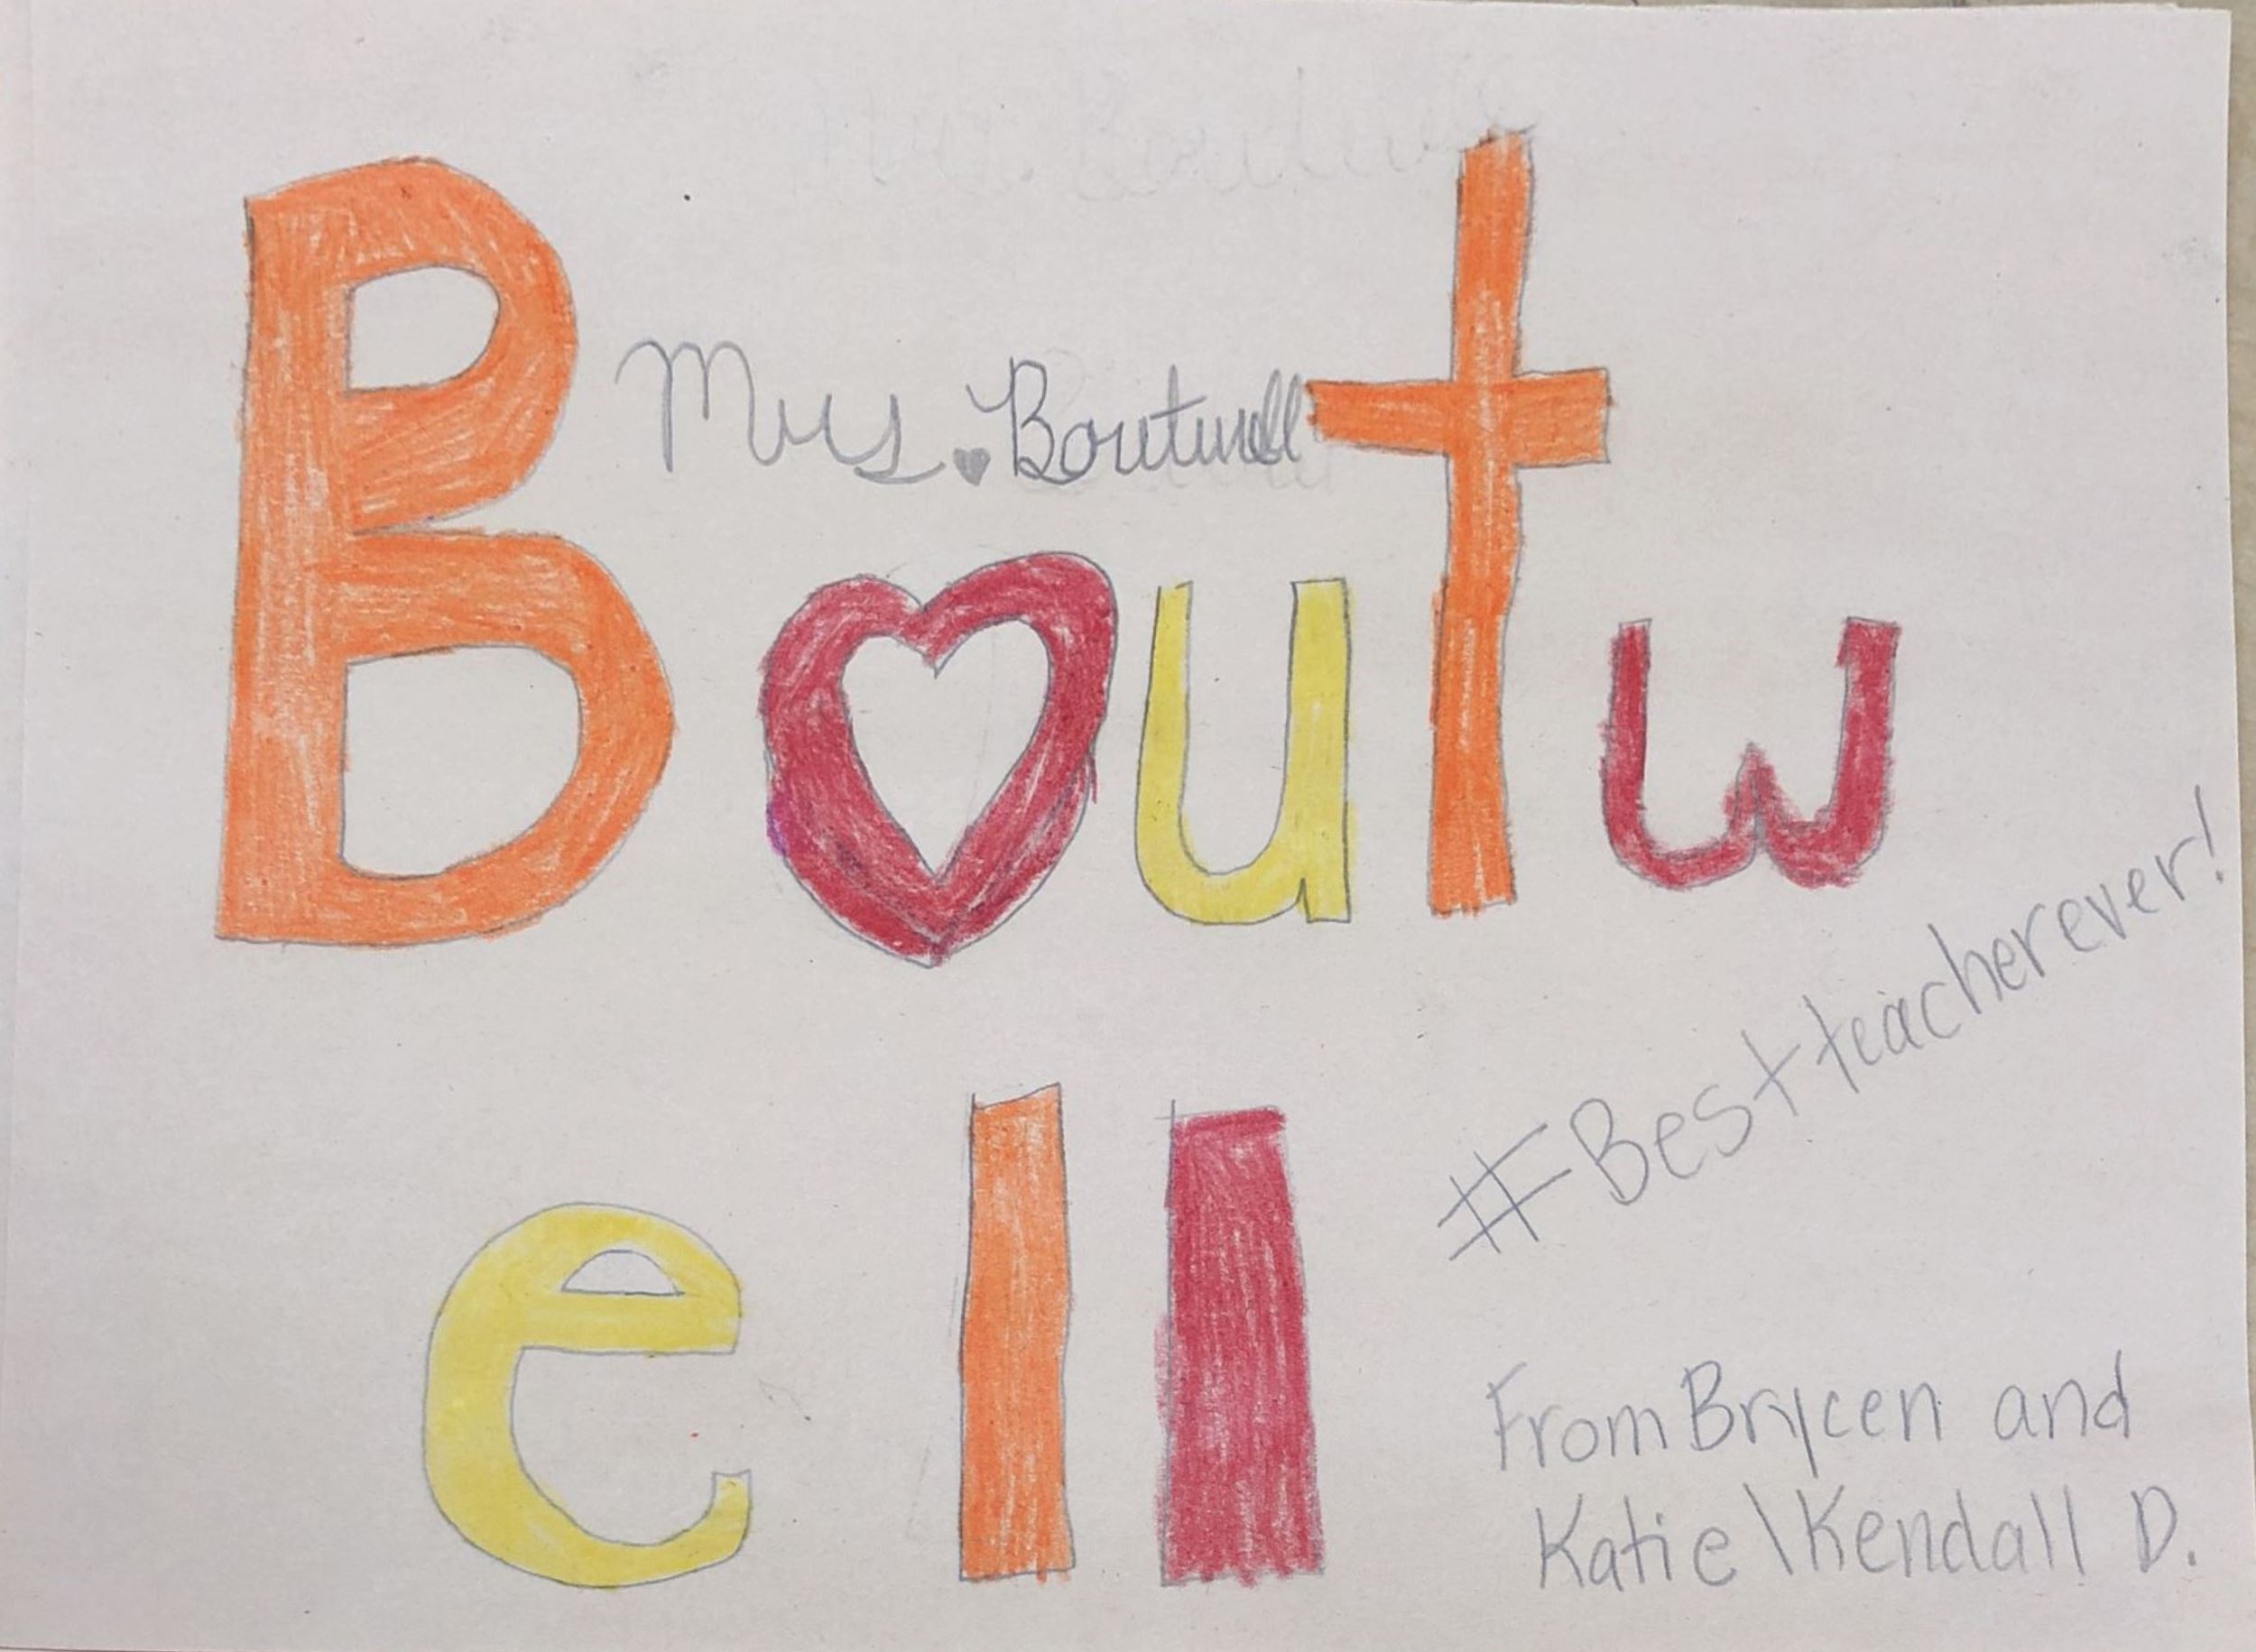 Mrs. Boutwell
Boutw
ell
#Bestteacherever!
From Brycen and
Katie\Kendall D.